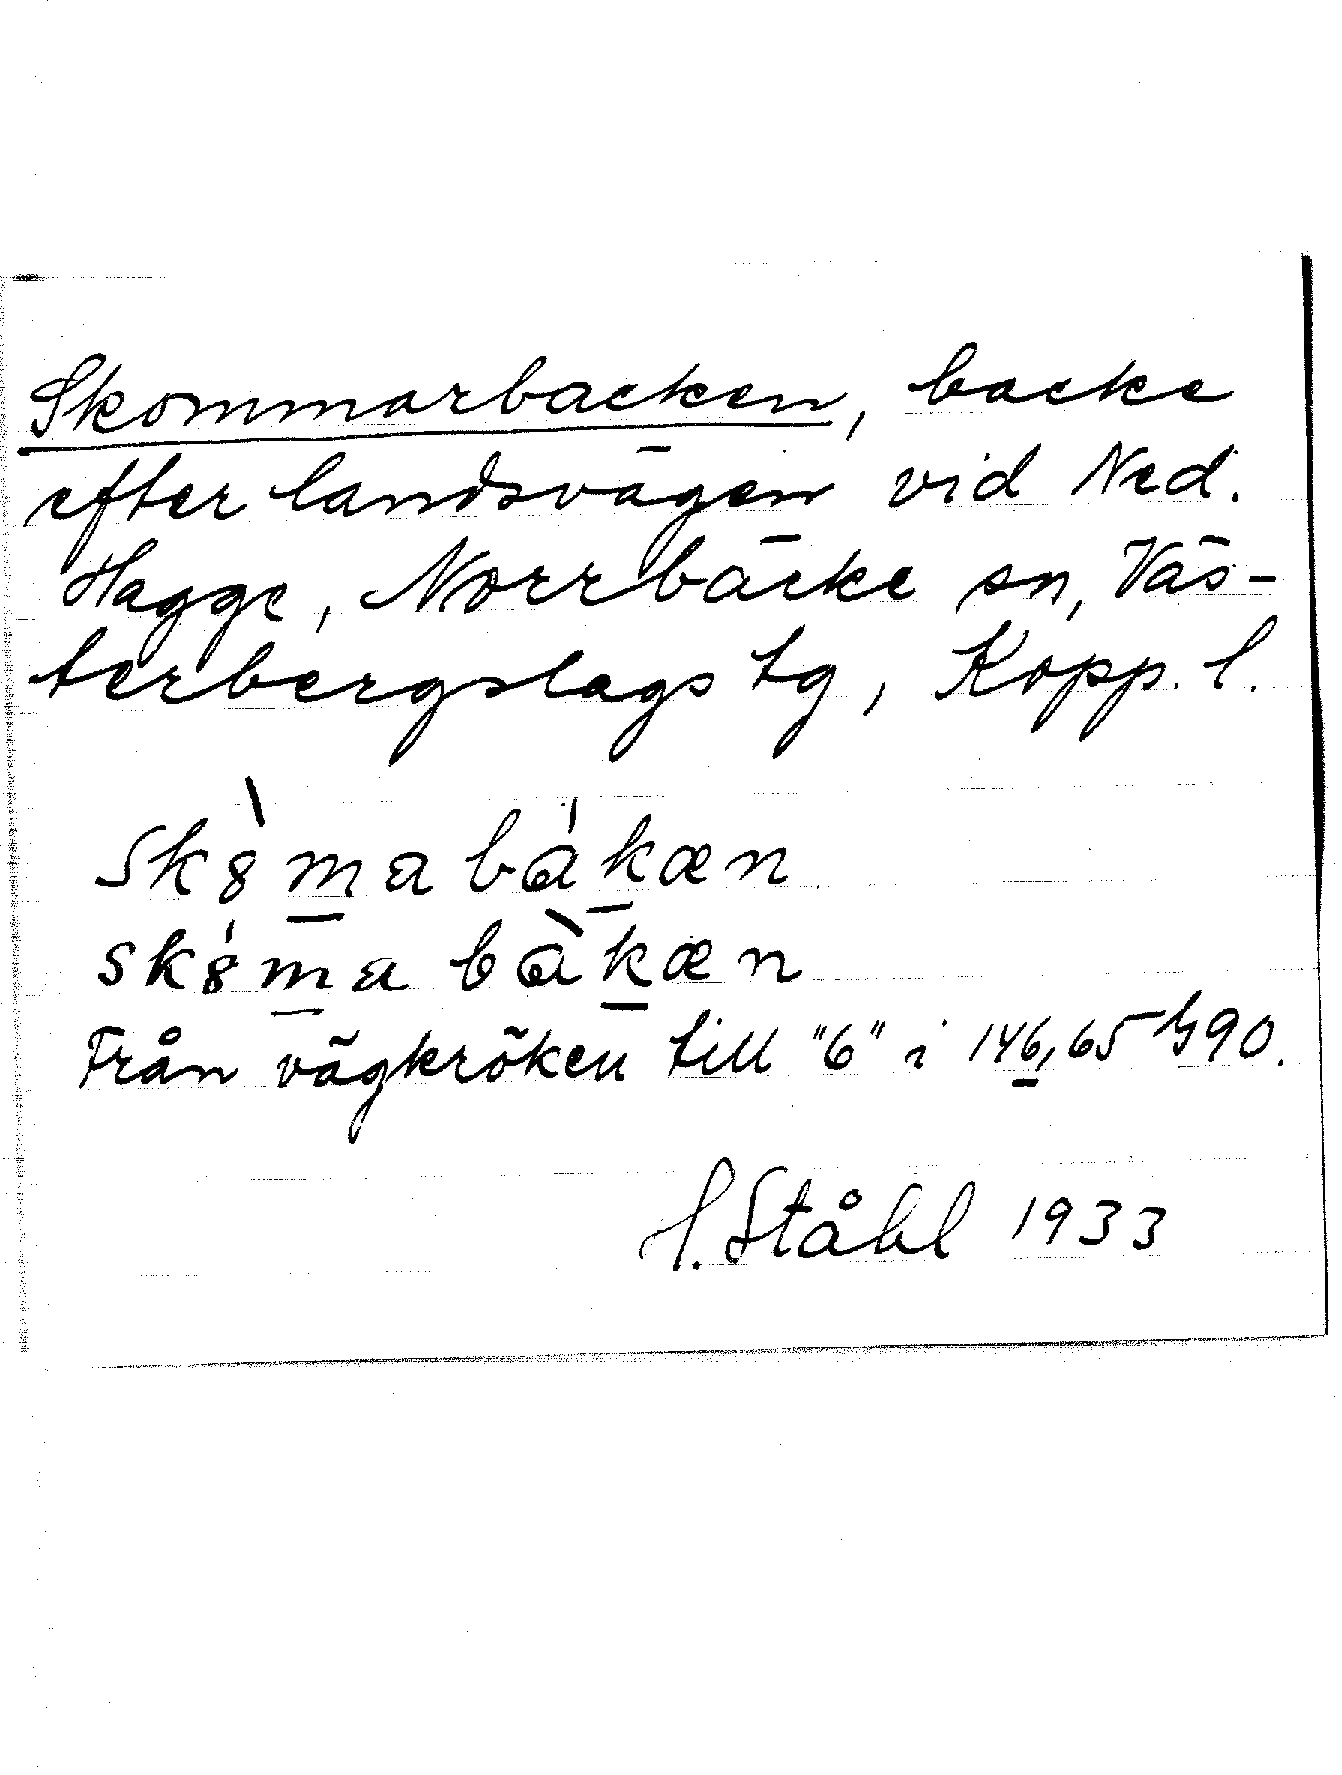 Skommarbacken, backe
efter landsvägen vid Ned.
Hagge, Norrbäcke sn, Väs-
terbergslags tg, Kopp. l.
Sk8̀mabákæn
sk8́mabàkæn
Från vägkröken till "6" i 146,65 490.
H. Ståhl 1933